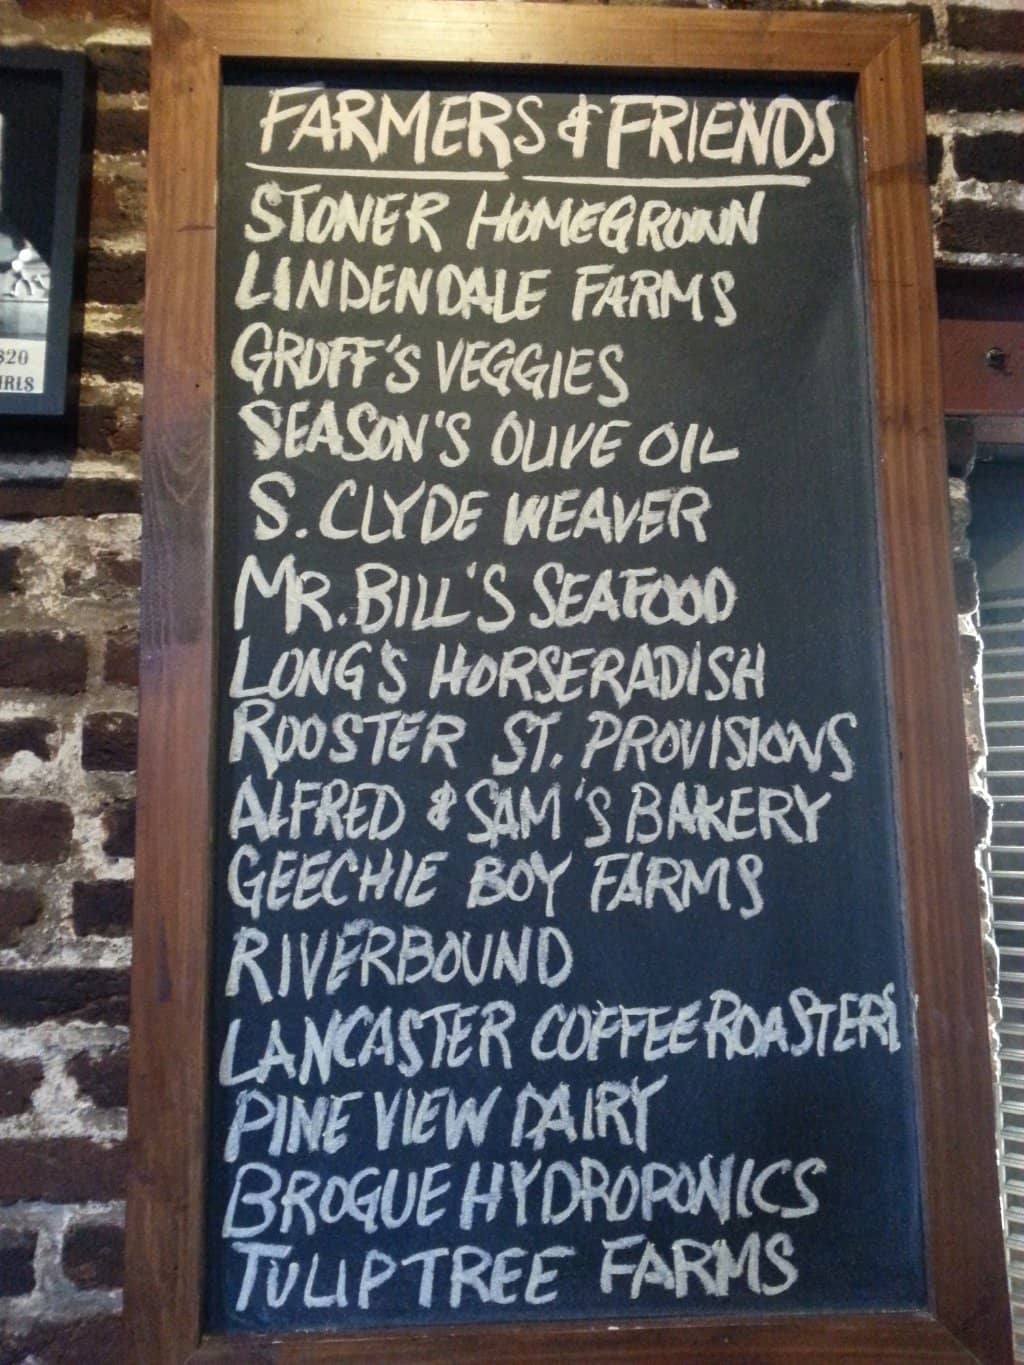 FARMERS & FRIENDS
STONER HOMEGROWN
LINDENDALE FARMS
GROFF'S VEGGIES
SEASON'S OLIVE OIL
S. CLYDE WEAVER
MR. BILL'S SEAFOOD
LONG'S HORSERADISH
ROOSTER ST. PROVISIONS
ALFRED & SAM'S BAKERY
GEECHIE BOY FARMS
RIVERBOUND
LANCASTER COFFEE ROASTERS
PINE VIEW DAIRY
BROGUE HYDROPONICS
TULIP TREE FARMS